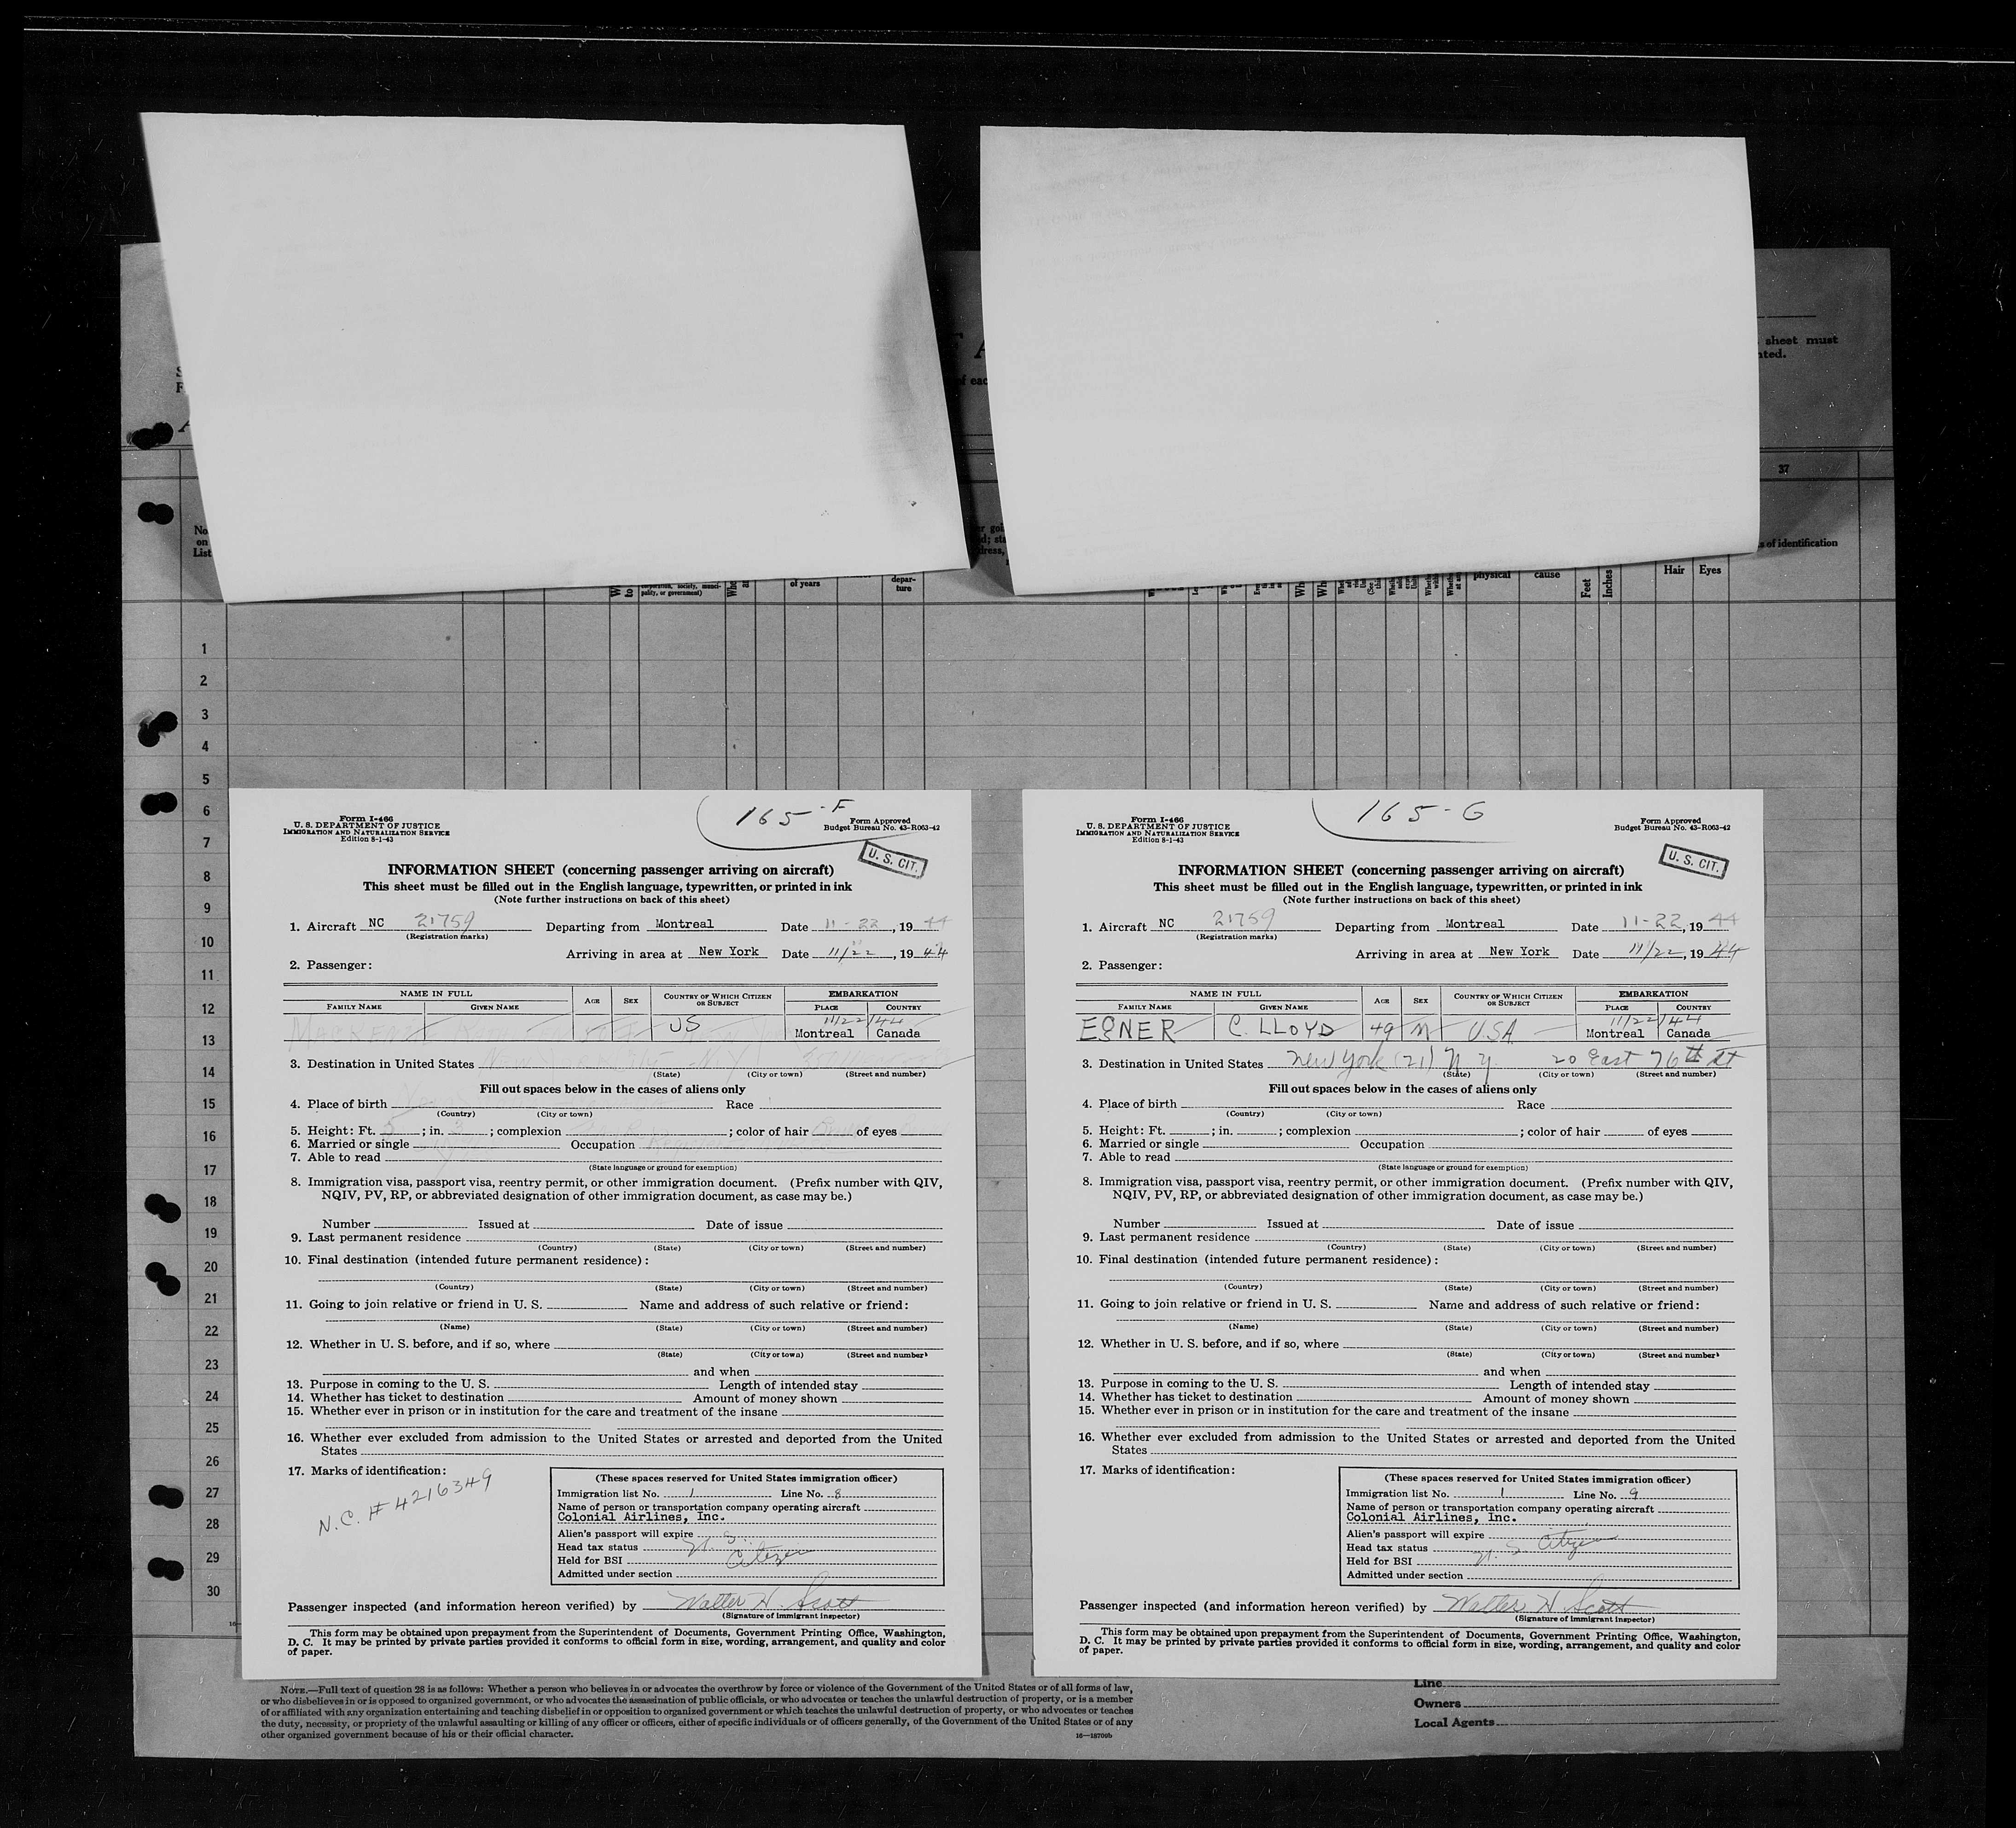 sheet must
nted.
of eac
37
No.
on
List
s of identification
of years
depar-
ture
pality, or government)
physical
cause
Feet
Inches
Hair
Eyes
1
2
3
4
5
6
7
8
9
10
11
12
13
14
15
16
17
18
19
20
21
22
23
24
25
26
27
28
29
30
165-F
Form I-466
U. S. DEPARTMENT OF JUSTICE
IMMIGRATION AND NATURALIZATION SERVICE
Edition 8-1-43
Form Approved
Budget Bureau No. 43-R063-42
U. S. CIT.
INFORMATION SHEET (concerning passenger arriving on aircraft)
This sheet must be filled out in the English language, typewritten, or printed in ink
(Note further instructions on back of this sheet)
1. Aircraft NC 21759 Departing from Montreal Date 11-22, 1944
(Registration marks)
Arriving in area at New York Date 11/22, 1944
2. Passenger:
NAME IN FULL AGE SEX COUNTRY OF WHICH CITIZEN OR SUBJECT EMBARKATION
FAMILY NAME GIVEN NAME PLACE COUNTRY
US 11/22/44
Montreal Canada
3. Destination in United States
(State) (City or town) (Street and number)
Fill out spaces below in the cases of aliens only
4. Place of birth Race
(Country) (City or town)
5. Height: Ft. 5; in. 3; complexion ; color of hair of eyes
6. Married or single Occupation
7. Able to read
(State language or ground for exemption)
8. Immigration visa, passport visa, reentry permit, or other immigration document. (Prefix number with QIV,
NQIV, PV, RP, or abbreviated designation of other immigration document, as case may be.)
Number Issued at Date of issue
9. Last permanent residence
(Country) (State) (City or town) (Street and number)
10. Final destination (intended future permanent residence):
(Country) (State) (City or town) (Street and number)
11. Going to join relative or friend in U. S. Name and address of such relative or friend:
(Name) (State) (City or town) (Street and number)
12. Whether in U. S. before, and if so, where
(State) (City or town) (Street and number)
and when
13. Purpose in coming to the U. S. Length of intended stay
14. Whether has ticket to destination Amount of money shown
15. Whether ever in prison or in institution for the care and treatment of the insane
16. Whether ever excluded from admission to the United States or arrested and deported from the United
States
17. Marks of identification:
N.C. # 4216349
(These spaces reserved for United States immigration officer)
Immigration list No. 1 Line No. 8
Name of person or transportation company operating aircraft
Colonial Airlines, Inc.
Alien's passport will expire
Head tax status U. S.
Held for BSI Citizen
Admitted under section
Passenger inspected (and information hereon verified) by Walter H. Scott
(Signature of immigrant inspector)
This form may be obtained upon prepayment from the Superintendent of Documents, Government Printing Office, Washington,
D. C. It may be printed by private parties provided it conforms to official form in size, wording, arrangement, and quality and color
of paper.
165-G
Form I-466
U. S. DEPARTMENT OF JUSTICE
IMMIGRATION AND NATURALIZATION SERVICE
Edition 8-1-43
Form Approved
Budget Bureau No. 43-R063-42
U. S. CIT.
INFORMATION SHEET (concerning passenger arriving on aircraft)
This sheet must be filled out in the English language, typewritten, or printed in ink
(Note further instructions on back of this sheet)
1. Aircraft NC 21759 Departing from Montreal Date 11-22, 1944
(Registration marks)
Arriving in area at New York Date 11/22, 1944
2. Passenger:
NAME IN FULL AGE SEX COUNTRY OF WHICH CITIZEN OR SUBJECT EMBARKATION
FAMILY NAME GIVEN NAME PLACE COUNTRY
11/22/44
EGNER C. LLOYD 49 M USA Montreal Canada
3. Destination in United States New York (21) N Y 20 East 76th St
(State) (City or town) (Street and number)
Fill out spaces below in the cases of aliens only
4. Place of birth Race
(Country) (City or town)
5. Height: Ft. ; in. ; complexion ; color of hair of eyes
6. Married or single Occupation
7. Able to read
(State language or ground for exemption)
8. Immigration visa, passport visa, reentry permit, or other immigration document. (Prefix number with QIV,
NQIV, PV, RP, or abbreviated designation of other immigration document, as case may be.)
Number Issued at Date of issue
9. Last permanent residence
(Country) (State) (City or town) (Street and number)
10. Final destination (intended future permanent residence):
(Country) (State) (City or town) (Street and number)
11. Going to join relative or friend in U. S. Name and address of such relative or friend:
(Name) (State) (City or town) (Street and number)
12. Whether in U. S. before, and if so, where
(State) (City or town) (Street and number)
and when
13. Purpose in coming to the U. S. Length of intended stay
14. Whether has ticket to destination Amount of money shown
15. Whether ever in prison or in institution for the care and treatment of the insane
16. Whether ever excluded from admission to the United States or arrested and deported from the United
States
17. Marks of identification:
(These spaces reserved for United States immigration officer)
Immigration list No. 1 Line No. 9
Name of person or transportation company operating aircraft
Colonial Airlines, Inc.
Alien's passport will expire
Head tax status U. S. Citizen
Held for BSI
Admitted under section
Passenger inspected (and information hereon verified) by Walter H. Scott
(Signature of immigrant inspector)
This form may be obtained upon prepayment from the Superintendent of Documents, Government Printing Office, Washington,
D. C. It may be printed by private parties provided it conforms to official form in size, wording, arrangement, and quality and color
of paper.
NOTE.—Full text of question 28 is as follows: Whether a person who believes in or advocates the overthrow by force or violence of the Government of the United States or of all forms of law,
or who disbelieves in or is opposed to organized government, or who advocates the assassination of public officials, or who advocates or teaches the unlawful destruction of property, or is a member
of or affiliated with any organization entertaining and teaching disbelief in or opposition to organized government or which teaches the unlawful destruction of property, or who advocates or teaches
the duty, necessity, or propriety of the unlawful assaulting or killing of any officer or officers, either of specific individuals or of officers generally, of the Government of the United States or of any
other organized government because of his or their official character.
16—18709b
Line
Owners
Local Agents